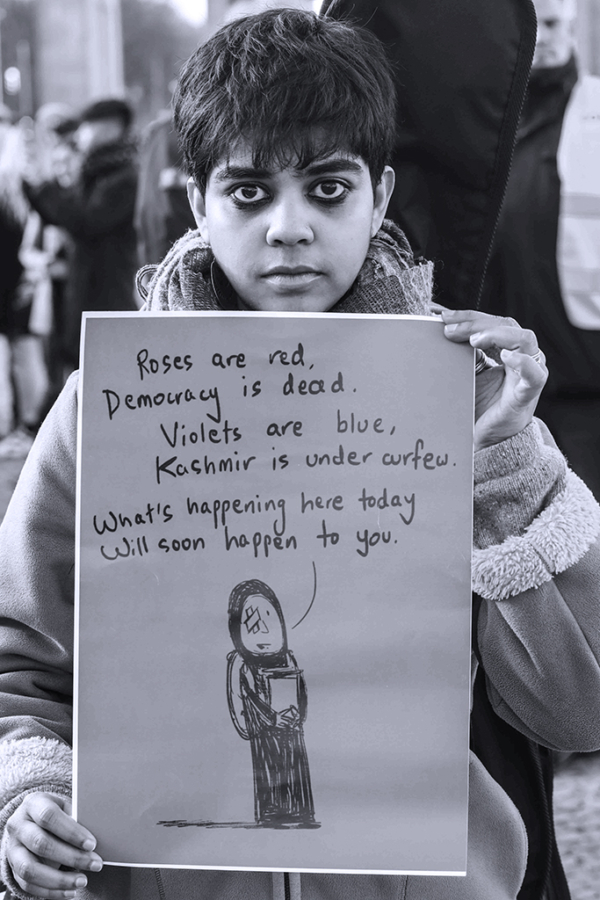 Roses are red,
Democracy is dead.
Violets are blue,
Kashmir is under curfew.
What's happening here today
Will soon happen to you.